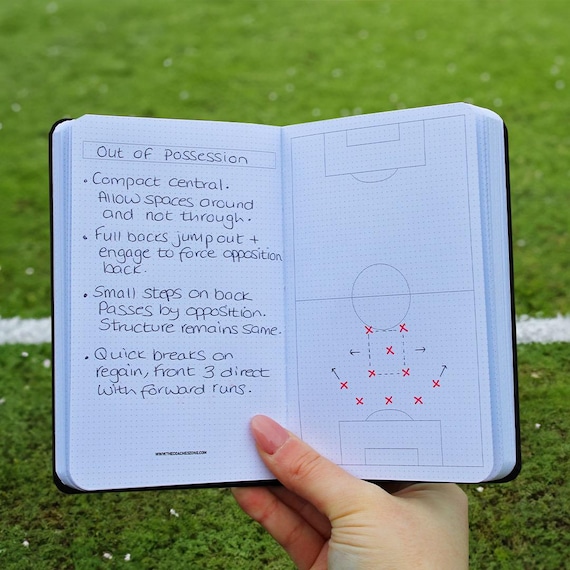 Out of Possession
• Compact central.
Allow spaces around
and not through.
• Full backs jump out +
engage to force opposition
back.
• Small steps on back
Passes by opposition.
Structure remains same.
• Quick breaks on
regain, front 3 direct
with forward runs.
WWW.THECOACHESZONE.COM